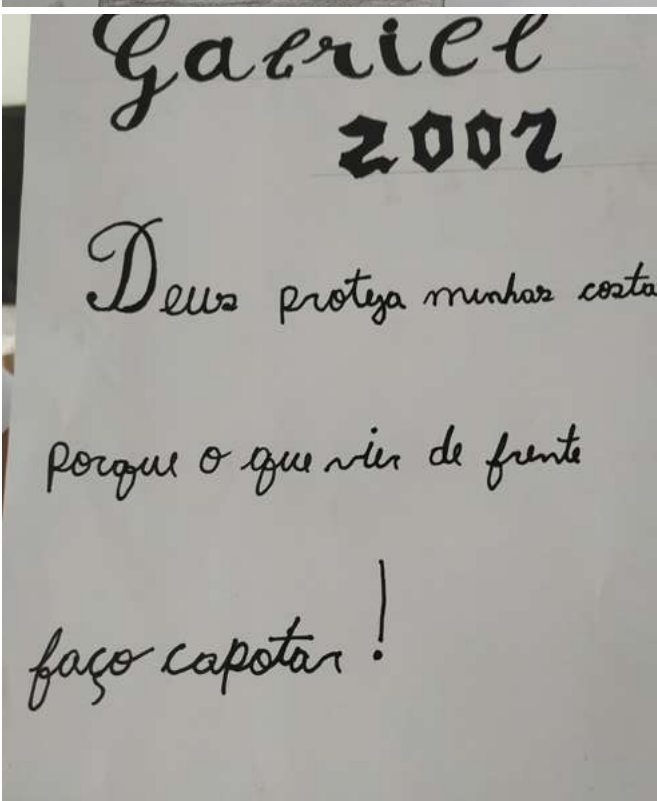 Gabriel
2002
Deus proteja minhas costa
porque o que vier de frente
faço capotar!